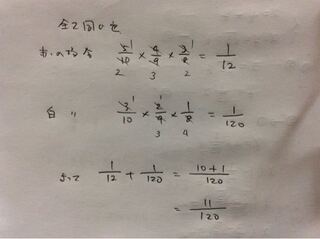 全て同じ色
赤の場合 5/10 × 4/9 × 3/8 = 1/12
白 〃 3/10 × 2/9 × 1/8 = 1/120
よって 1/12 + 1/120 = 10+1/120
= 11/120